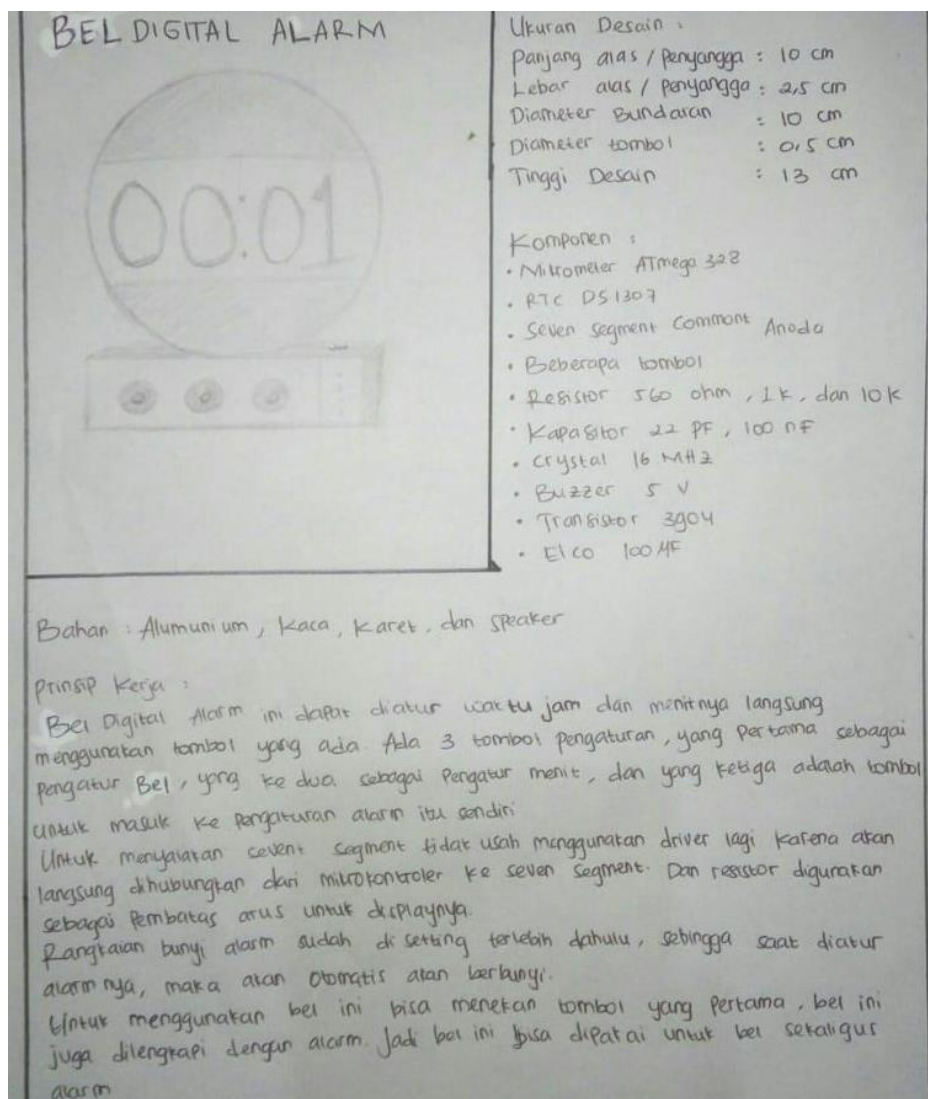 BEL DIGITAL ALARM
00:01
Ukuran Desain :
Panjang alas / Penyangga : 10 cm
Lebar alas / penyangga : 2,5 cm
Diameter Bundaran : 10 cm
Diameter tombol : 0,5 cm
Tinggi Desain : 13 cm
Komponen :
• Mikrometer ATmega 328
• RTC DS1307
• Seven Segment Commont Anoda
• Beberapa tombol
• Resistor 560 ohm, 1k, dan 10k
• Kapasitor 22 PF, 100 nF
• Crystal 16 MHz
• Buzzer 5 V
• Transistor 3904
• Elco 100 MF
Bahan : Alumunium, Kaca, Karet, dan speaker
Prinsip Kerja :
Bel Digital Alarm ini dapat diatur waktu jam dan menitnya langsung
menggunakan tombol yang ada. Ada 3 tombol pengaturan, yang pertama sebagai
pengatur Bel, yang ke dua sebagai pengatur menit, dan yang ketiga adalah tombol
untuk masuk ke pengaturan alarm itu sendiri
Untuk menyalakan sevent segment tidak usah menggunakan driver lagi karena akan
langsung dihubungkan dari mikrokontroler ke seven segment. Dan resistor digunakan
sebagai Pembatas arus untuk displaynya.
Rangkaian bunyi alarm sudah di setting terlebih dahulu, sehingga saat diatur
alarm nya, maka akan otomatis akan berbunyi.
Untuk menggunakan bel ini bisa menekan tombol yang pertama, bel ini
juga dilengkapi dengan alarm. Jadi bel ini bisa dipakai untuk bel sekaligus
alarm